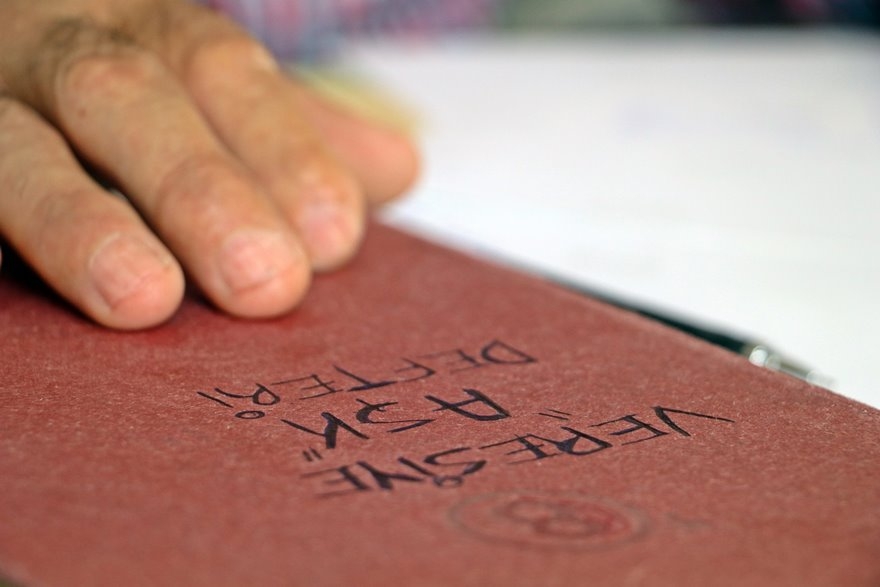 VERESİYE
"AŞK"
DEFTERİ